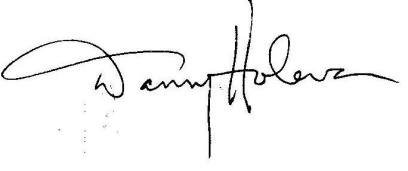 Danny Holewa